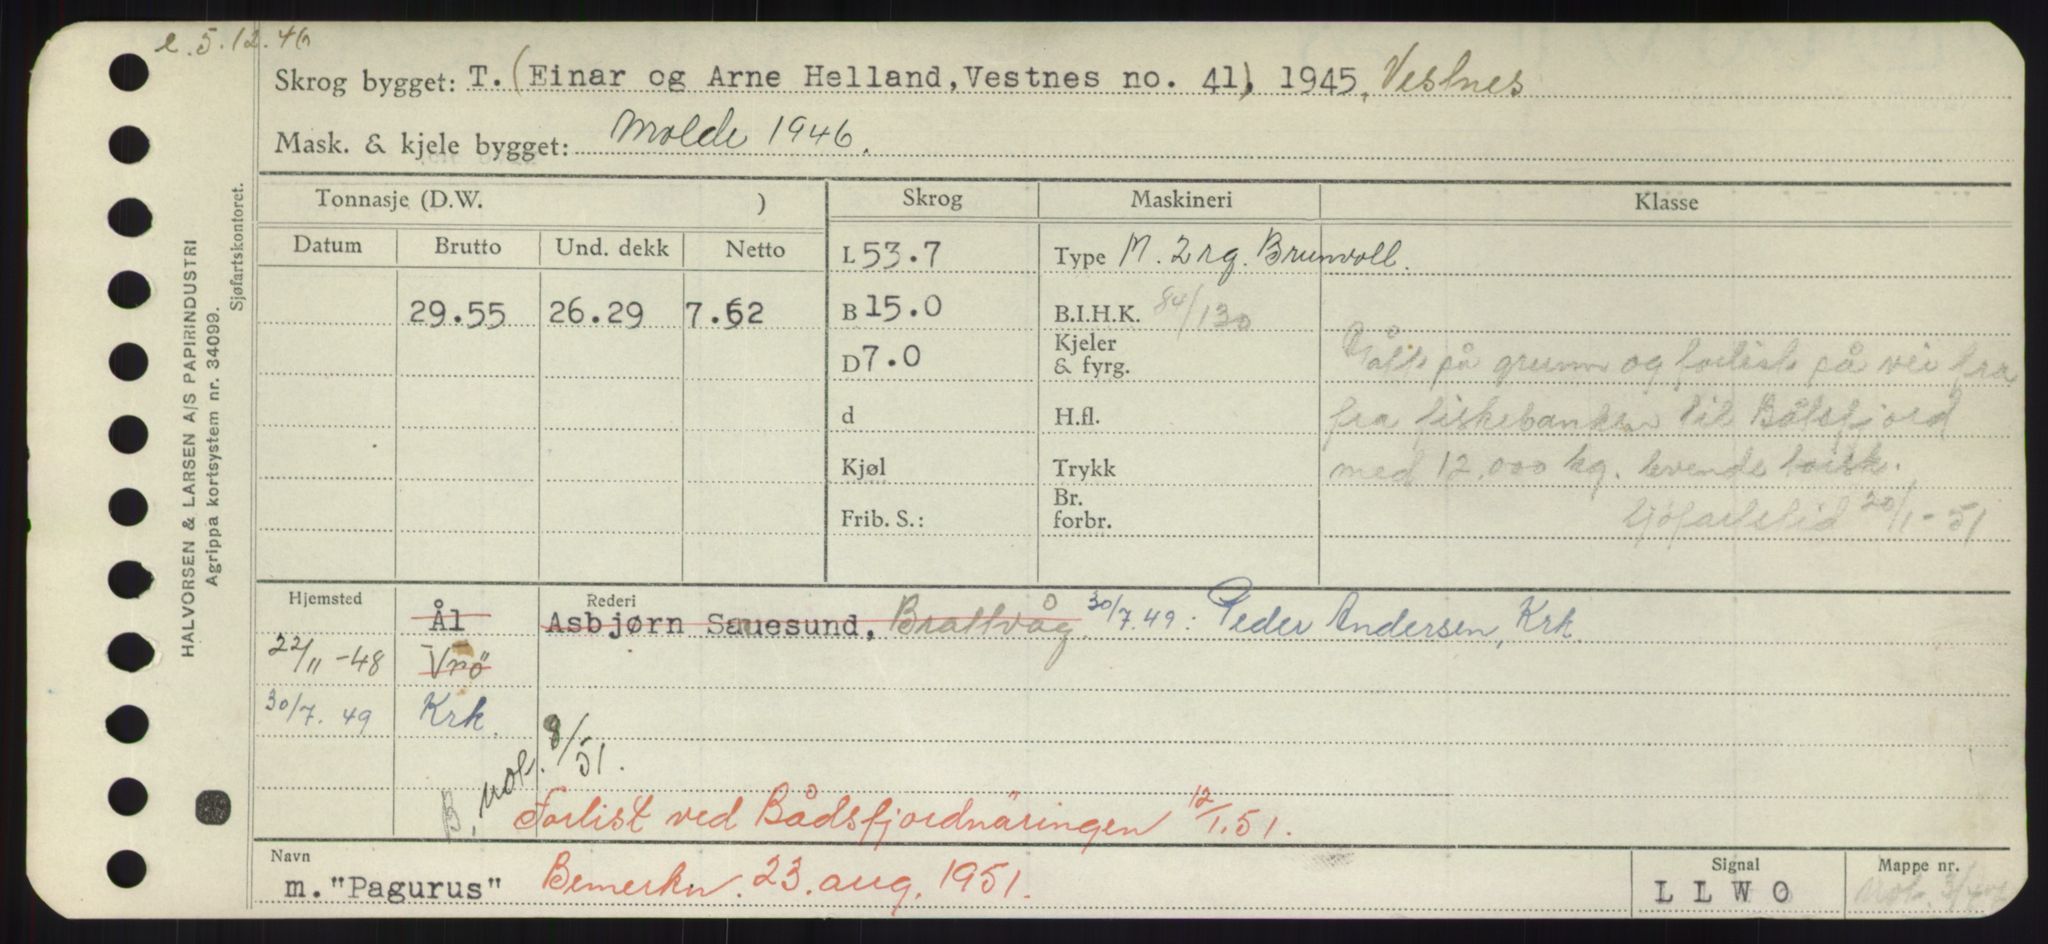 e. 5.12.46
Skrog bygget: T. (Einar og Arne Helland, Vestnes no. 41), 1945, Vestnes
Mask. & kjele bygget: Molde 1946.
Tonnasje (D.W. ) Skrog Maskineri Klasse
Datum Brutto Und. dekk Netto L 53.7 Type M. 2 rg. Brunvoll.
29.55 26.29 7.62 B 15.0 B.I.H.K. 84/130
D 7.0 Kjeler & fyrg. på grunn og forlist på vei fra
d H.fl. fra fiskebanken til Båtsfjord
Kjøl Trykk med 12.000 kg. levende torsk.
Frib. S.: Br. forbr. Sjøfartstid 20/1-51
HALVORSEN & LARSEN A/S PAPIRINDUSTRI
Agrippa kortsystem nr. 34099.
Sjøfartskontoret.
Hjemsted Ål Rederi Asbjørn Sauesund, Brattvåg 30/7.49: Peder Andersen, Krk
22/11-48 Vrö
30/7.49 Krk.
B. not. 8/51.
Forlist ved Bådsfjordnäringen 12/1.51.
Navn m. "Pagurus" Bemerkn. 23. aug. 1951. Signal LLWO Mappe nr.